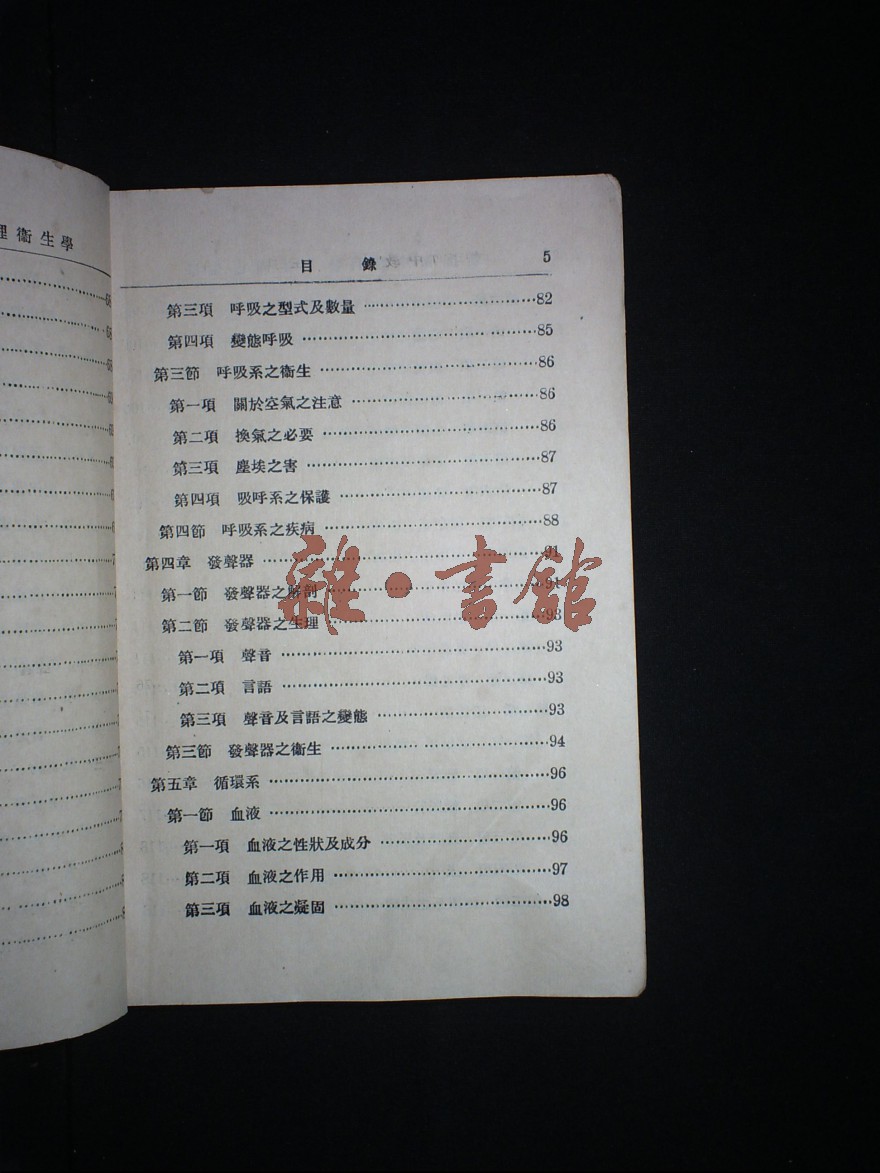 理衞生學
目錄 5
第三項 呼吸之型式及數量 ………………82
第四項 變態呼吸 ………………85
第三節 呼吸系之衞生 ………………86
第一項 關於空氣之注意 ………………86
第二項 換氣之必要 ………………86
第三項 塵埃之害 ………………87
第四項 吸呼系之保護 ………………87
第四節 呼吸系之疾病 ………………88
第四章 發聲器 ………………91
第一節 發聲器之解剖 ………………91
第二節 發聲器之生理 ………………93
第一項 聲音 ………………93
第二項 言語 ………………93
第三項 聲音及言語之變態 ………………93
第三節 發聲器之衞生 ………………94
第五章 循環系 ………………96
第一節 血液 ………………96
第一項 血液之性狀及成分 ………………96
第二項 血液之作用 ………………97
第三項 血液之凝固 ………………98
雜·書館